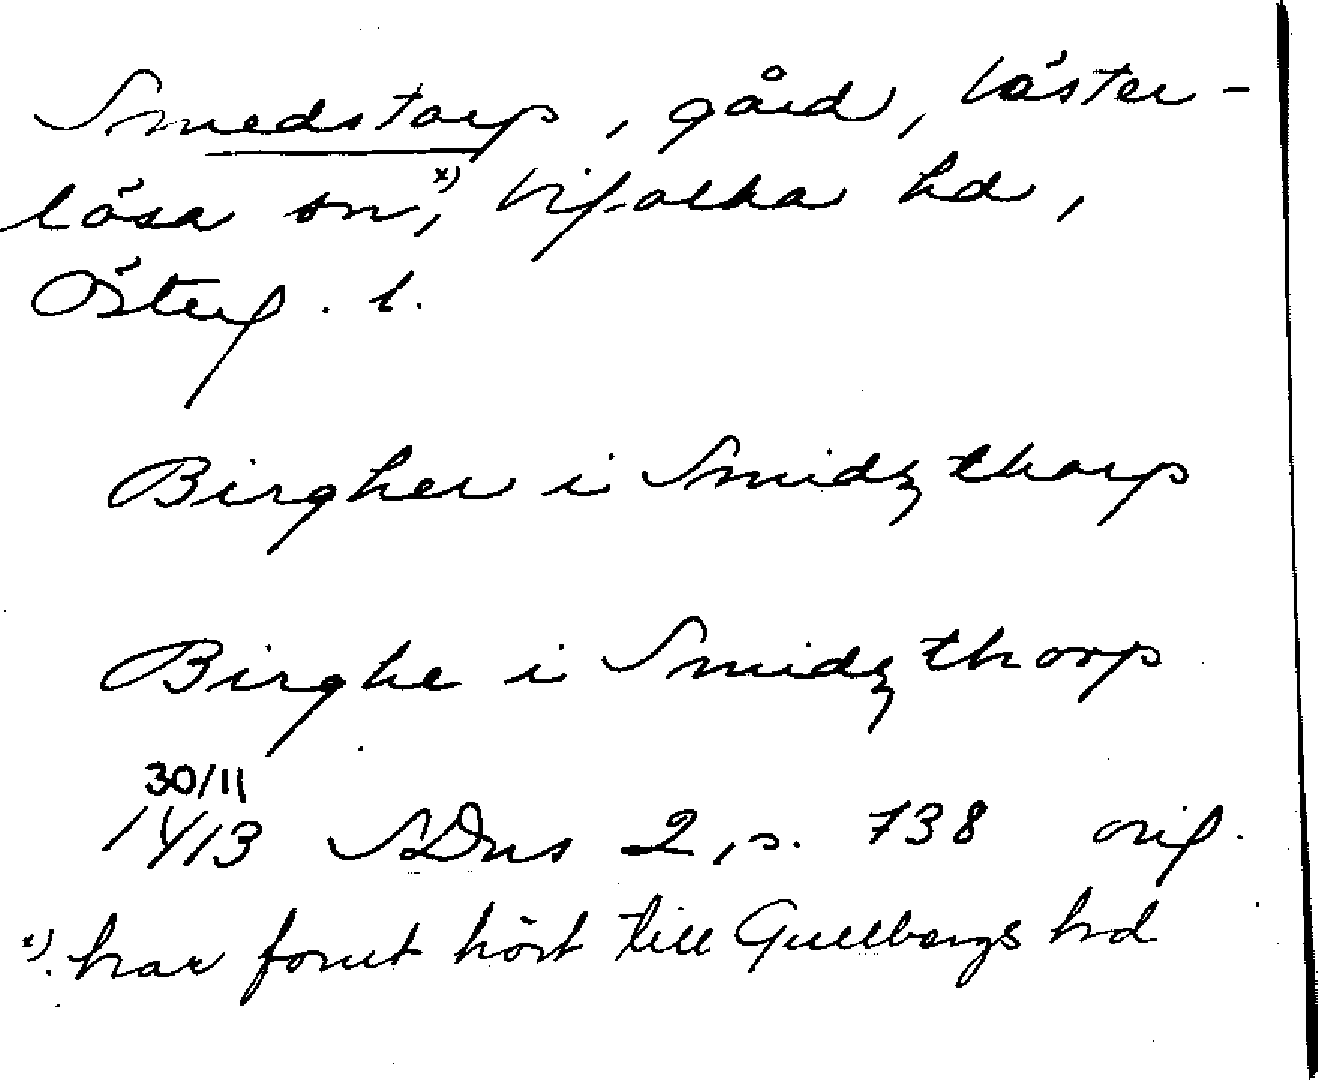 Smedstorp, gård, Väster-
lösa sn,x) Vifolka hd,
Österg. l.
Birgher i Smidzthorp
Birghe i Smidzthorp
30/11
1413 SDns 2, s. 738 orig.
x). har fornt hört till Gullbergs hd